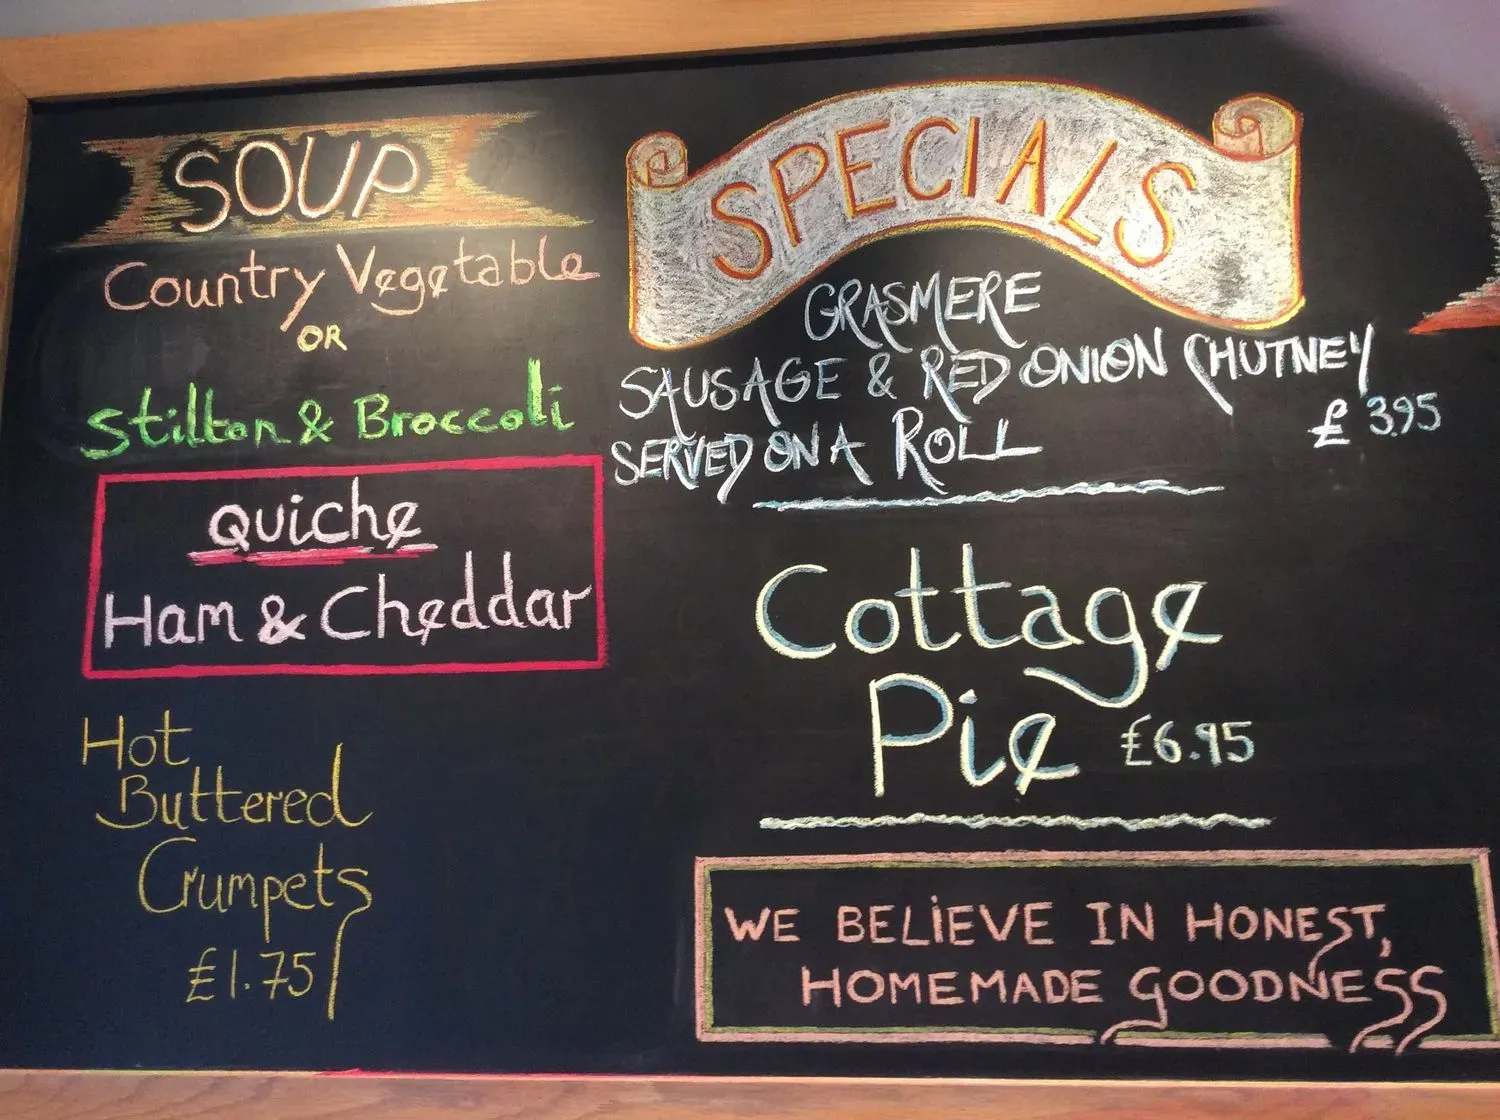 SOUP
Country Vegetable
OR
Stilton & Broccoli
Quiche
Ham & Cheddar
Hot
Buttered
Crumpets
£1.75
SPECIALS
GRASMERE
SAUSAGE & RED ONION CHUTNEY
£3.95
SERVED ON A ROLL
Cottage
Pie £6.95
WE BELiEVE IN HONEST,
HOMEMADE GOODNESS